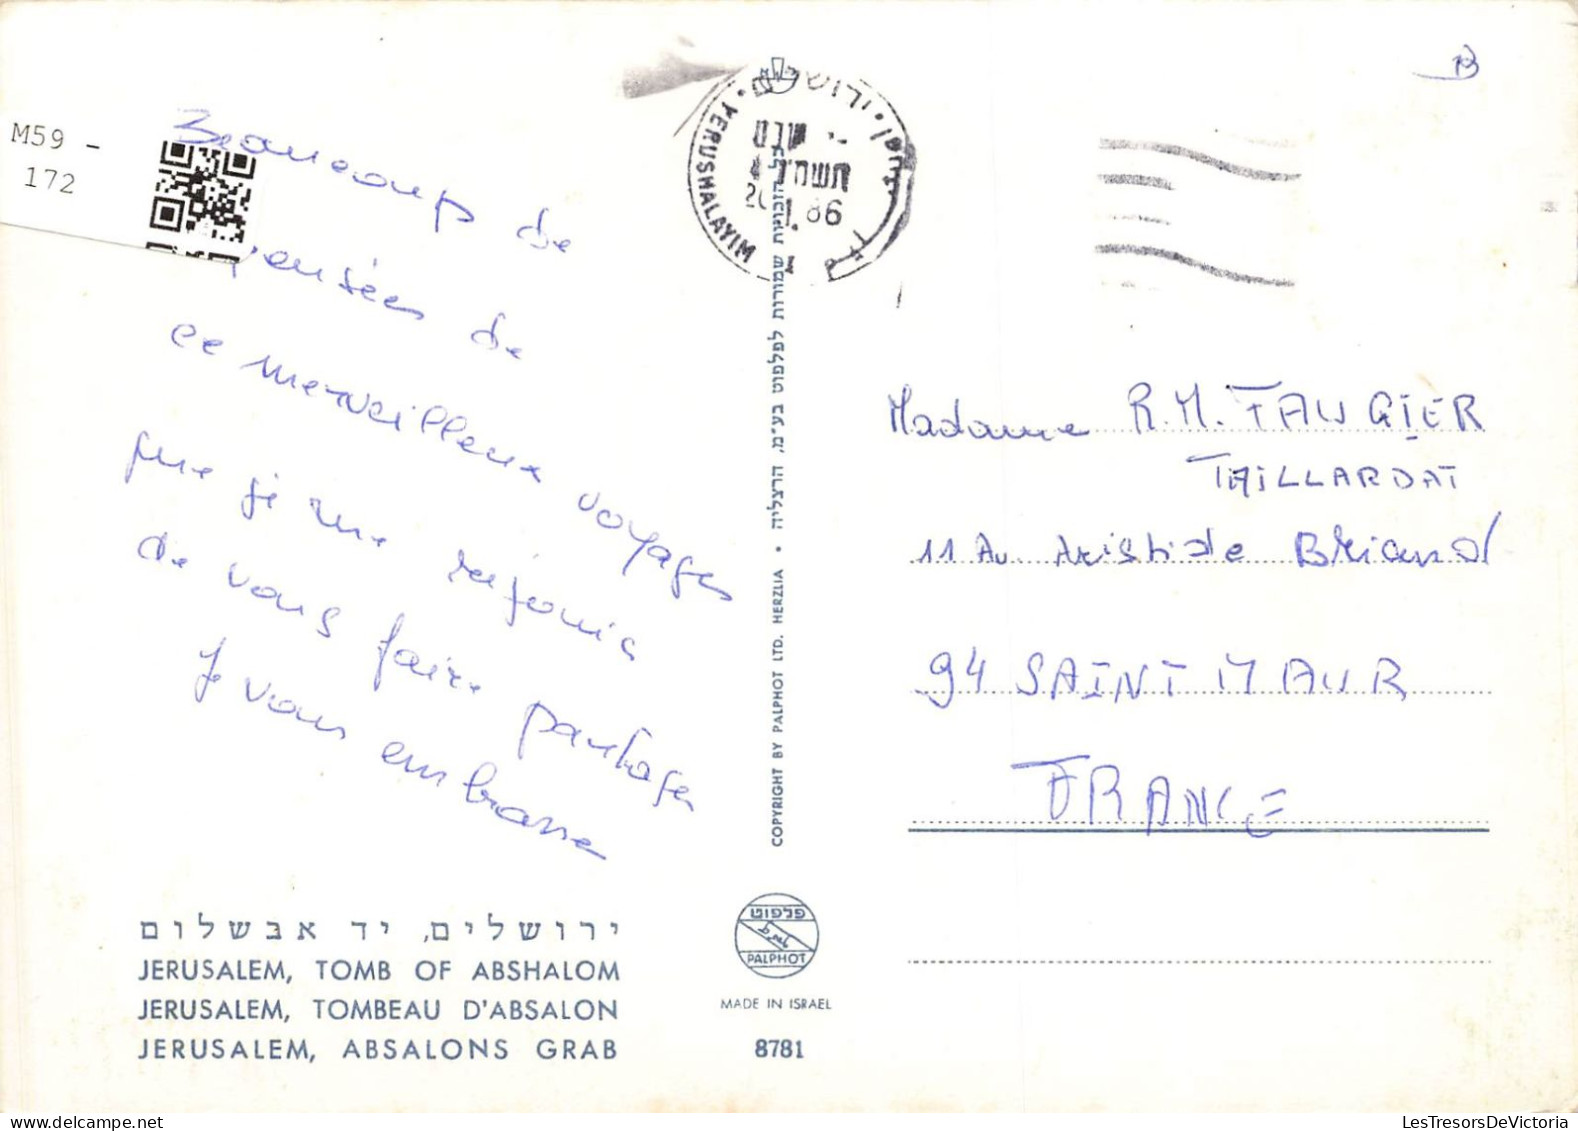 M59 -
172
Beaucoup de
pensées de
ce merveilleux voyages
que je me rejouis
de vous faire partager
Je vous embrasse
ירושלים, יד אבשלום
JERUSALEM, TOMB OF ABSHALOM
JERUSALEM, TOMBEAU D'ABSALON
JERUSALEM, ABSALONS GRAB
YERUSHALAYIM
תשמ"ו
86
כל הזכויות שמורות לפלפוט בע"מ, הרצליה • COPYRIGHT BY PALPHOT LTD. HERZLIA
פלפוט
PALPHOT
MADE IN ISRAEL
8781
B
Madame R.M. FAUGIER
TAILLARDAT
11 Av Aristide Briand
94 SAINT MAUR
FRANCE
LesTresorsDeVictoria